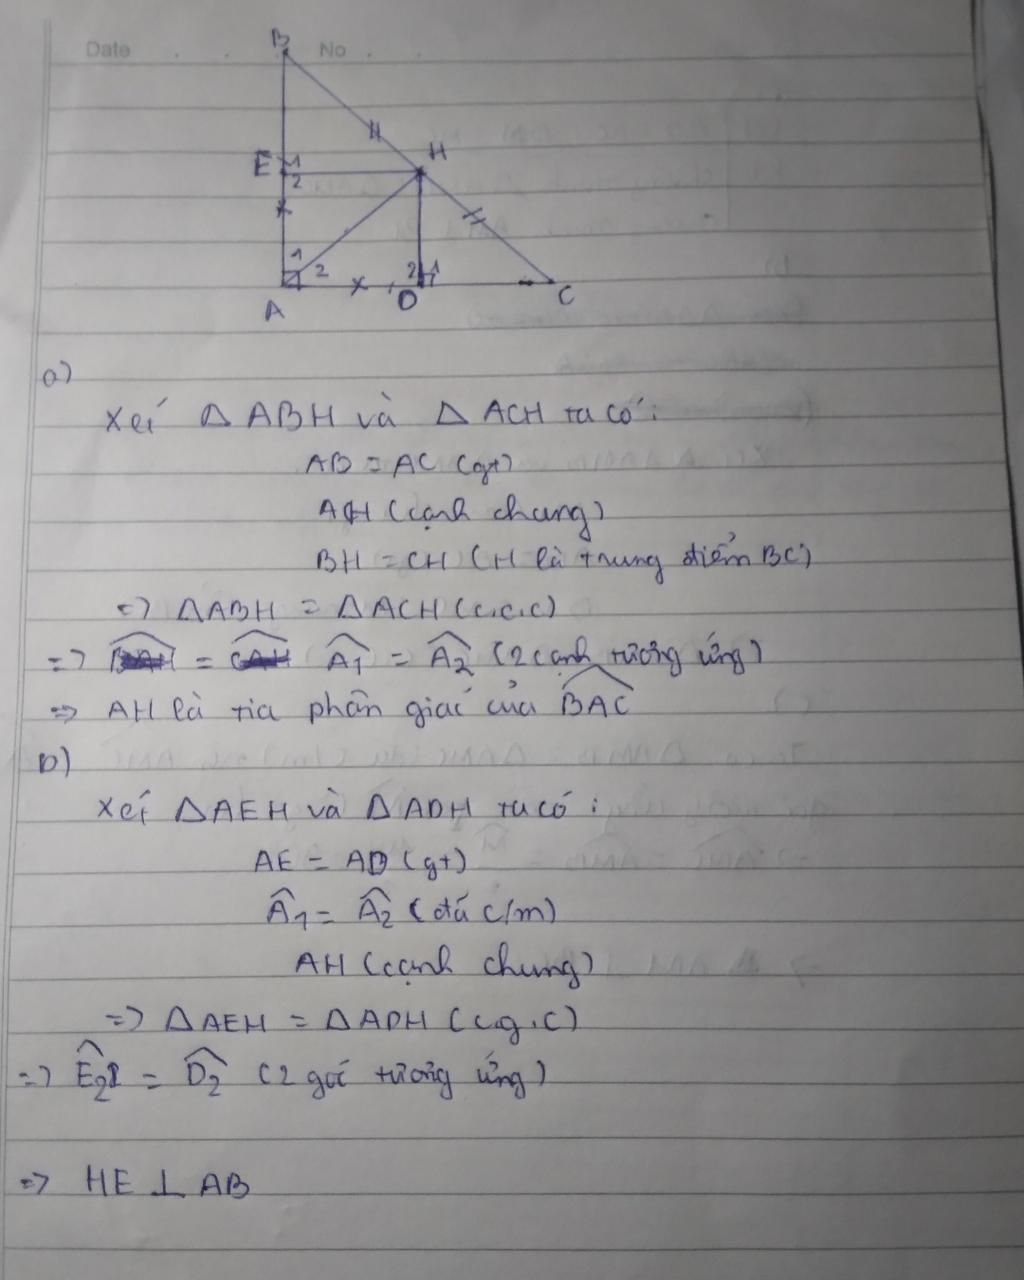 Date No
B
H
E 1
2
1
2 2 1
A D C
a)
Xét Δ ABH và Δ ACH ta có:
AB = AC (gt)
AH (cạnh chung)
BH = CH (H là trung điểm BC)
=> ΔABH = ΔACH (c.c.c)
=> = Â1 = Â2 (2 cạnh tương ứng)
=> AH là tia phân giác của BAC
b)
Xét ΔAEH và ΔADH ta có:
AE = AD (gt)
Â1 = Â2 (đã c/m)
AH (cạnh chung)
=> ΔAEH = ΔADH (c.g.c)
=> Ê2 = D̂2 (2 góc tương ứng)
=> HE ⊥ AB